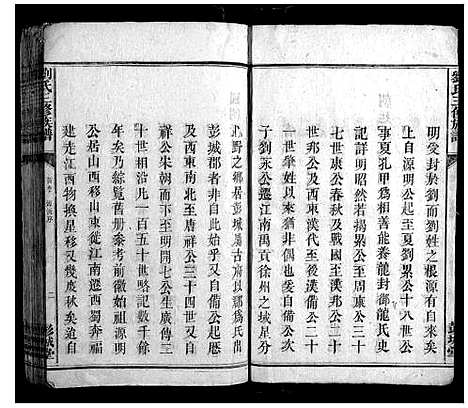 明受封於劉而劉姓之根源有自來矣
上自源明公起至夏劉累公十八世公
事夏孔甲爲相善能養龍封御龍氏史
記詳明昭然若揭累公至周康公三十
七世康公春秋及戰國至漢邦公三十
世邦公及西東漢代至後漢備公二十
一世肇姓以何來猶非偶也自備公次
子劉永公遷江南禹貢徐州之域星分
之野之鄉居彭城屬古府以郡爲氏出
彭城郡者非自此始乎又自備公
及西東南北至唐祥公三十四世又自
祥公朱朝而下至明開七公生廣傳三
十世相沿凡一百五十世略記數千餘
年矣乃綜覽舊册黍考前徽始祖源明
公居山西移山東徙江南遷西蜀奔福
建走江西物換星移又幾度秋矣迨自
劉氏三修族譜
彭城堂